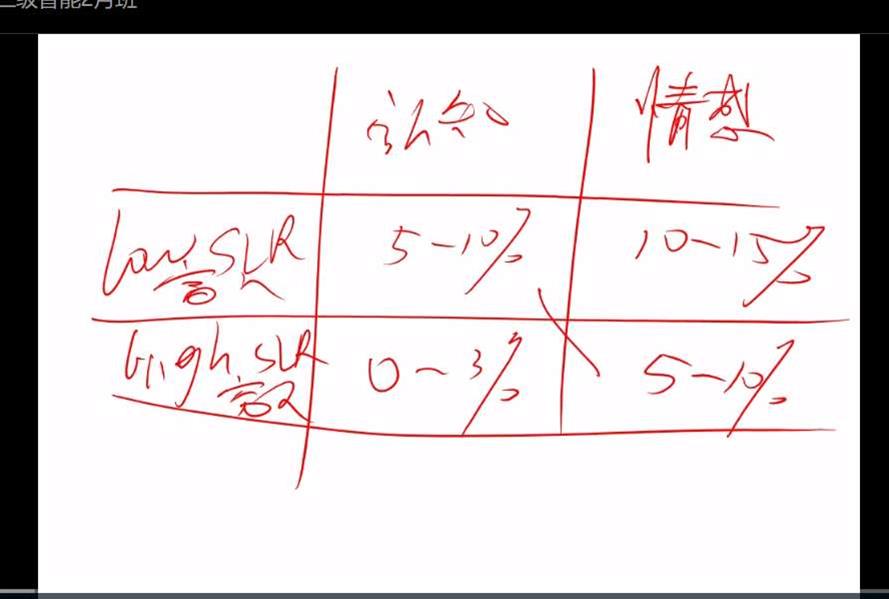 二级智能2月班
认知 情感
low SLR 5-10% 10-15%
容
High SLR 0~3% 5-10%